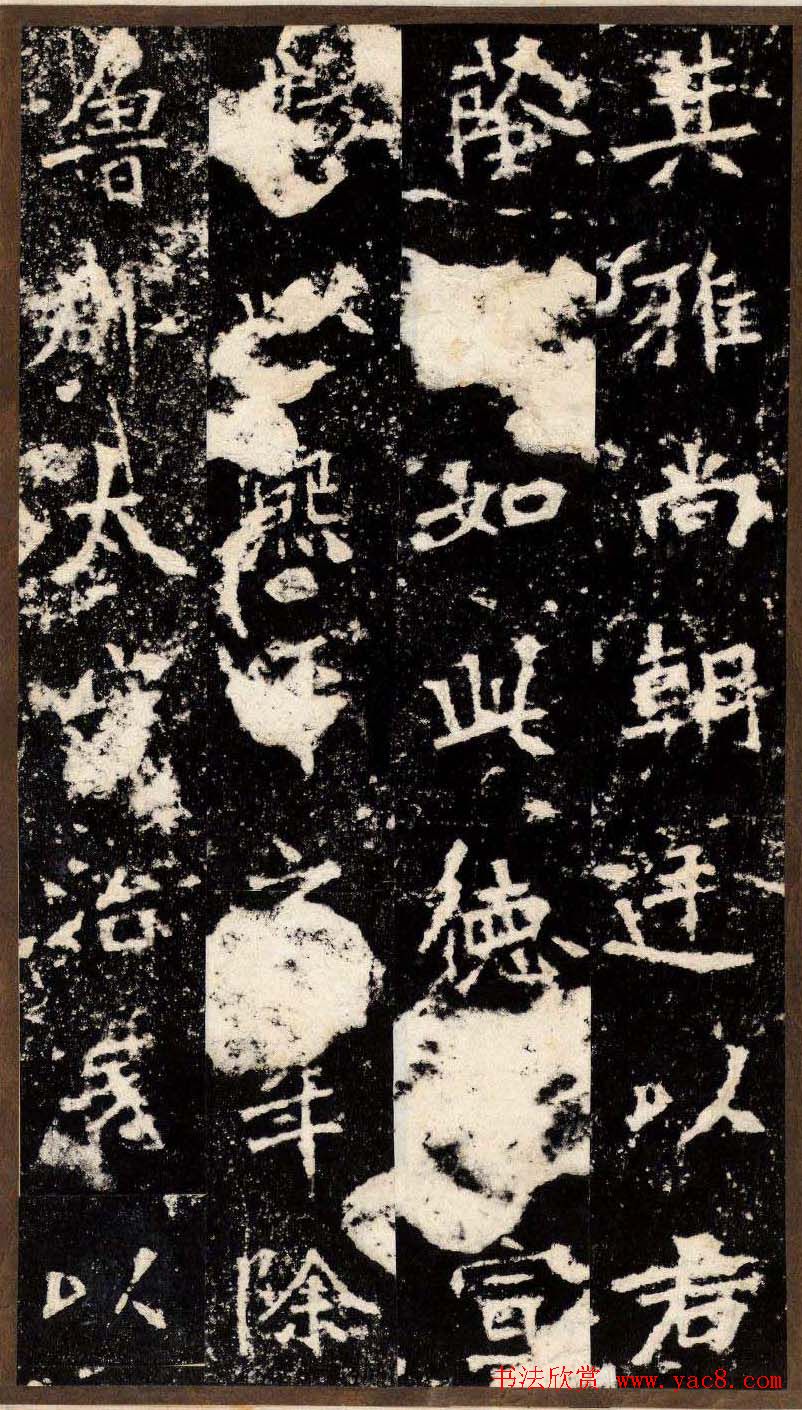 其雅尚朝廷以君
蔭如此德宣
熙平之年除
魯郡太守治民以
书法欣赏 www.yac8.com